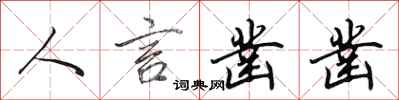 人言凿凿
词典网